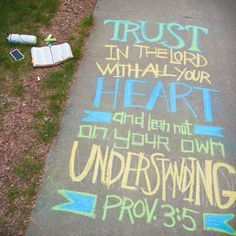 TRUST
IN THE LORD
WITH ALL YOUR
HEART
and lean not
ON YOUR OWN
UNDERSTANDING
PROV. 3:5